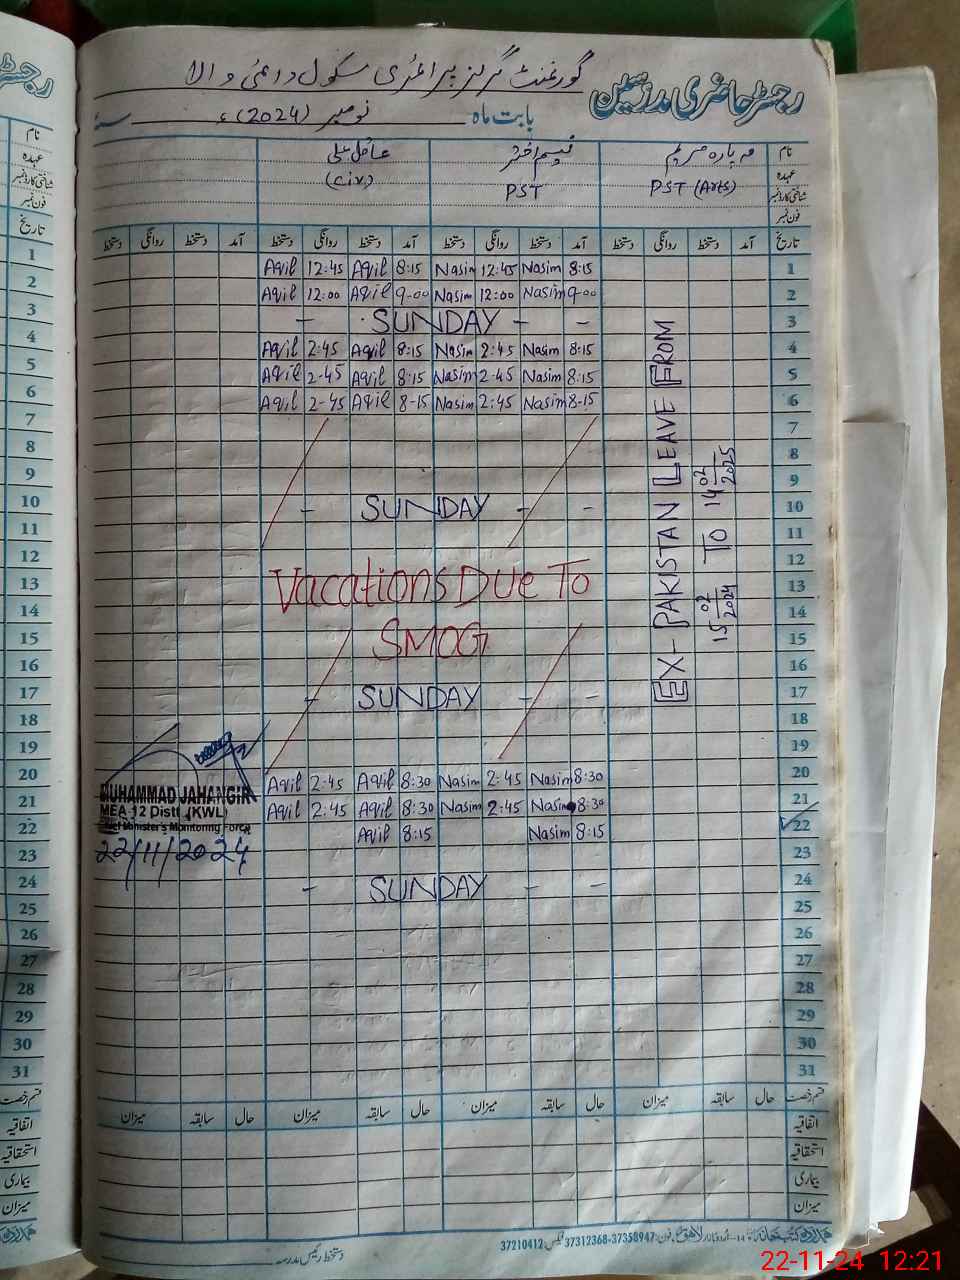 رجسٹر حاضری مدرسین
گورنمنٹ گرلز پرائمری سکول
بابت ماہ نومبر (2024)ء
نام مہ پارہ مریم نسیم اختر
عہدہ PST (Arts) PST (Civ)
شناختی کارڈ نمبر
فون نمبر
تاریخ آمد دستخط روانگی دستخط آمد دستخط روانگی دستخط آمد دستخط روانگی دستخط آمد دستخط روانگی دستخط
1 Aqil 12:45 Aqil 8:15 Nasim 12:45 Nasim 8:15 1
2 Aqil 12:00 Aqil 9-00 Nasim 12:00 Nasim 9-00 2
3 - SUNDAY - - 3
4 Aqil 2:45 Aqil 8:15 Nasim 2:45 Nasim 8:15 4
5 Aqil 2-45 Aqil 8:15 Nasim 2-45 Nasim 8:15 5
6 Aqil 2-45 Aqil 8-15 Nasim 2:45 Nasim 8-15 6
7 7
8 8
9 9
10 - SUNDAY - - 10
11 11
12 12
13 Vacations Due To 13
14 14
15 SMOG 15
16 16
17 - SUNDAY - - 17
18 18
19 19
20 Aqil 2:45 Aqil 8:30 Nasim 2:45 Nasim 8:30 20
21 Aqil 2:45 Aqil 8:30 Nasim 2:45 Nasim 8:30 21
22 Aqil 8:15 Nasim 8:15 22
23 23
24 - SUNDAY - - 24
25 25
26 26
27 27
28 28
29 29
30 30
31 31
EX-PAKISTAN LEAVE FROM
15 02/2024 TO 14 02/2025
MUHAMMAD JAHANGIR
MEA-12 Distt.(KWL)
Chief Minister's Monitoring Force
22/11/2024
قسم رخصت حال سابقہ میزان حال سابقہ میزان حال سابقہ میزان حال سابقہ میزان
اتفاقیہ
استحقاقیہ
بیماری
میزان
فون: 37358947-37312368 فیکس: 37210412
دستخط رئیس مدرسہ
22-11-24 12:21